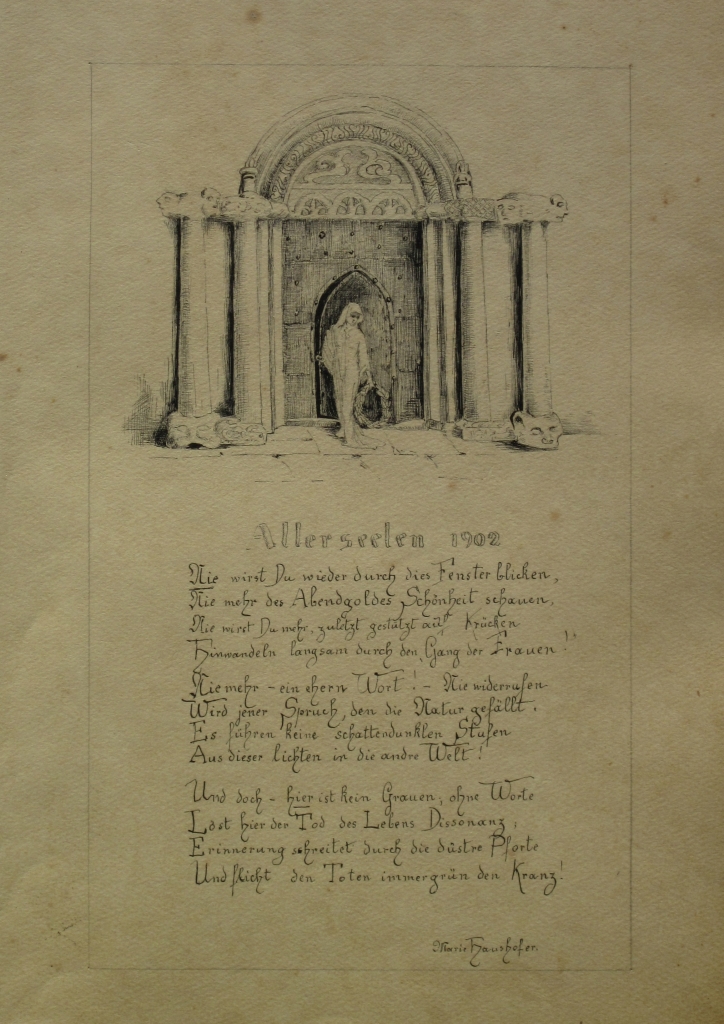 Allerseelen 1902
Nie wirst Du wieder durch dies Fenster blicken,
Nie mehr des Abendgoldes Schönheit schauen,
Nie wirst Du mehr, zuletzt gestützt auf Krücken
Hinwandeln langsam durch den Gang der Frauen!
Nie mehr - ein ehern Wort! - Nie widerrufen
Wird jener Spruch, den die Natur gefällt.
Es führen keine schattendunklen Stufen
Aus dieser lichten in die andre Welt!
Und doch - hier ist kein Grauen, ohne Worte
Löst hier der Tod des Lebens Dissonanz,
Erinnerung schreitet durch die düstre Pforte
Und flicht den Toten immergrün den Kranz!
Marie Haushofer.